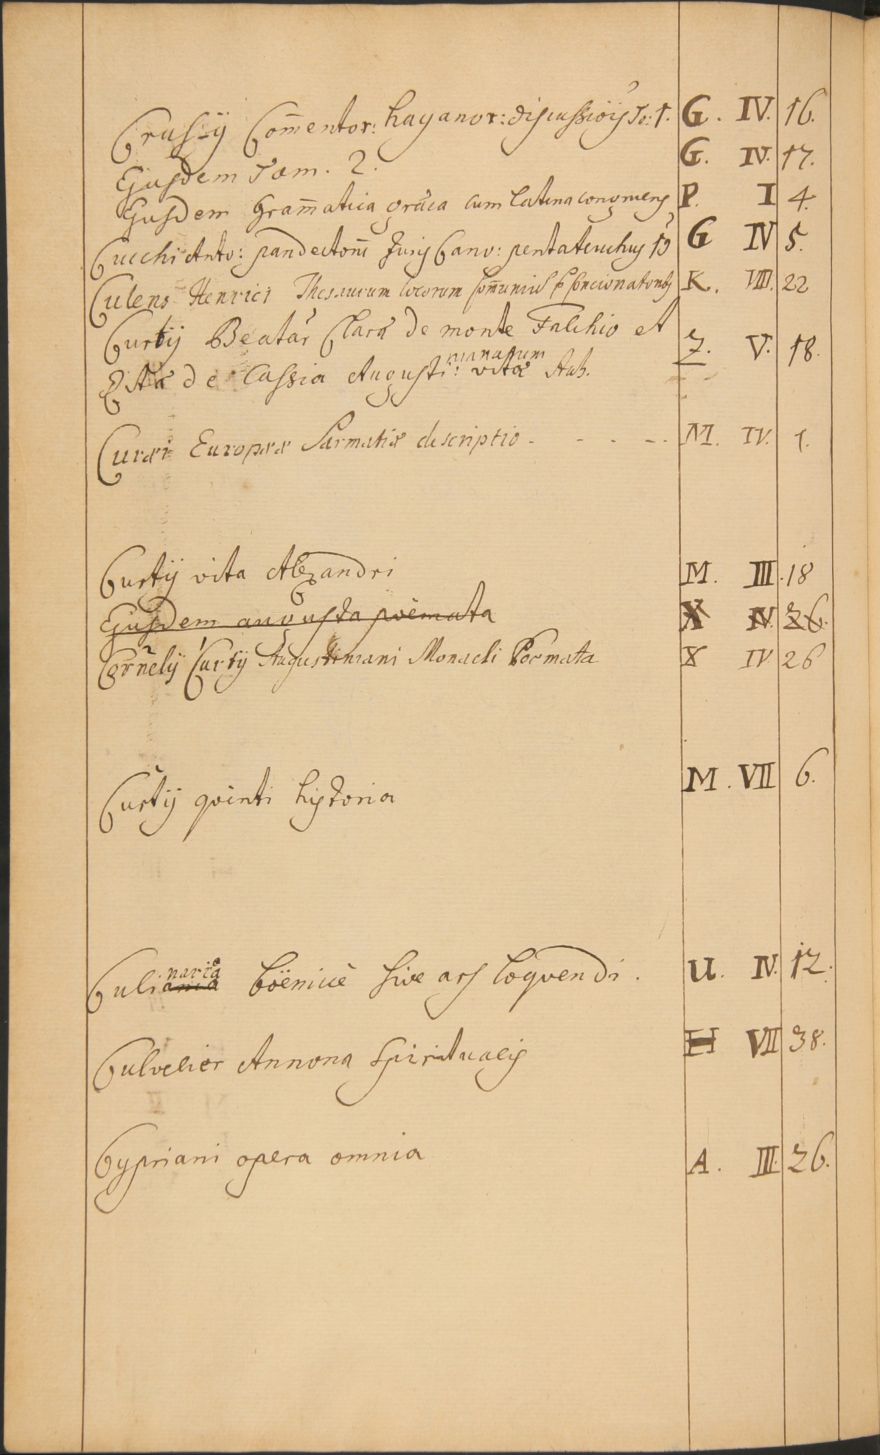 Crusij Com̄entor: hayanor: discussiõis To: 1. G. IV. 16.
Ejusdem Tom. 2. G. IV. 17.
Ejusdem Gram̄atica græca cum latina congruens P. I 4.
Cucchi Anto: pandectom̄ Juris Cano: pentateuchus G IV 5.
Culens Henrici Thesaurum locorum K. VIII. 22
Curtij Beatar̄ Claræ de monte Falchio et
Ritæ de Cassia Augusti: manarum vitæ Z. V. 18.
Curæi Europææ Sarmatiæ descriptio - - - -- M. IV. 1.
Curtij vita Alexandri M. III. 18
Ejusdem angusta poëmata X IV. 26.
Cornelij Curtij Augustiniani Monachi Poemata X IV 26
Curtij qvinti historia M. VII 6.
Culinaria sive ars loqvendi. U. IV. 12.
Culvelier Annona spiritualis H VII 38.
Cypriani opera omnia A. III. 26.